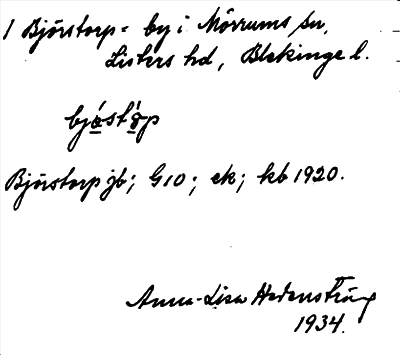 1 Bjärstorp = by i Mörrums sn,
Listers hd, Blekinge l.
Bjärstorp jb; G10; ek; kb 1920.
Anna-Lisa Hedenström
1934.